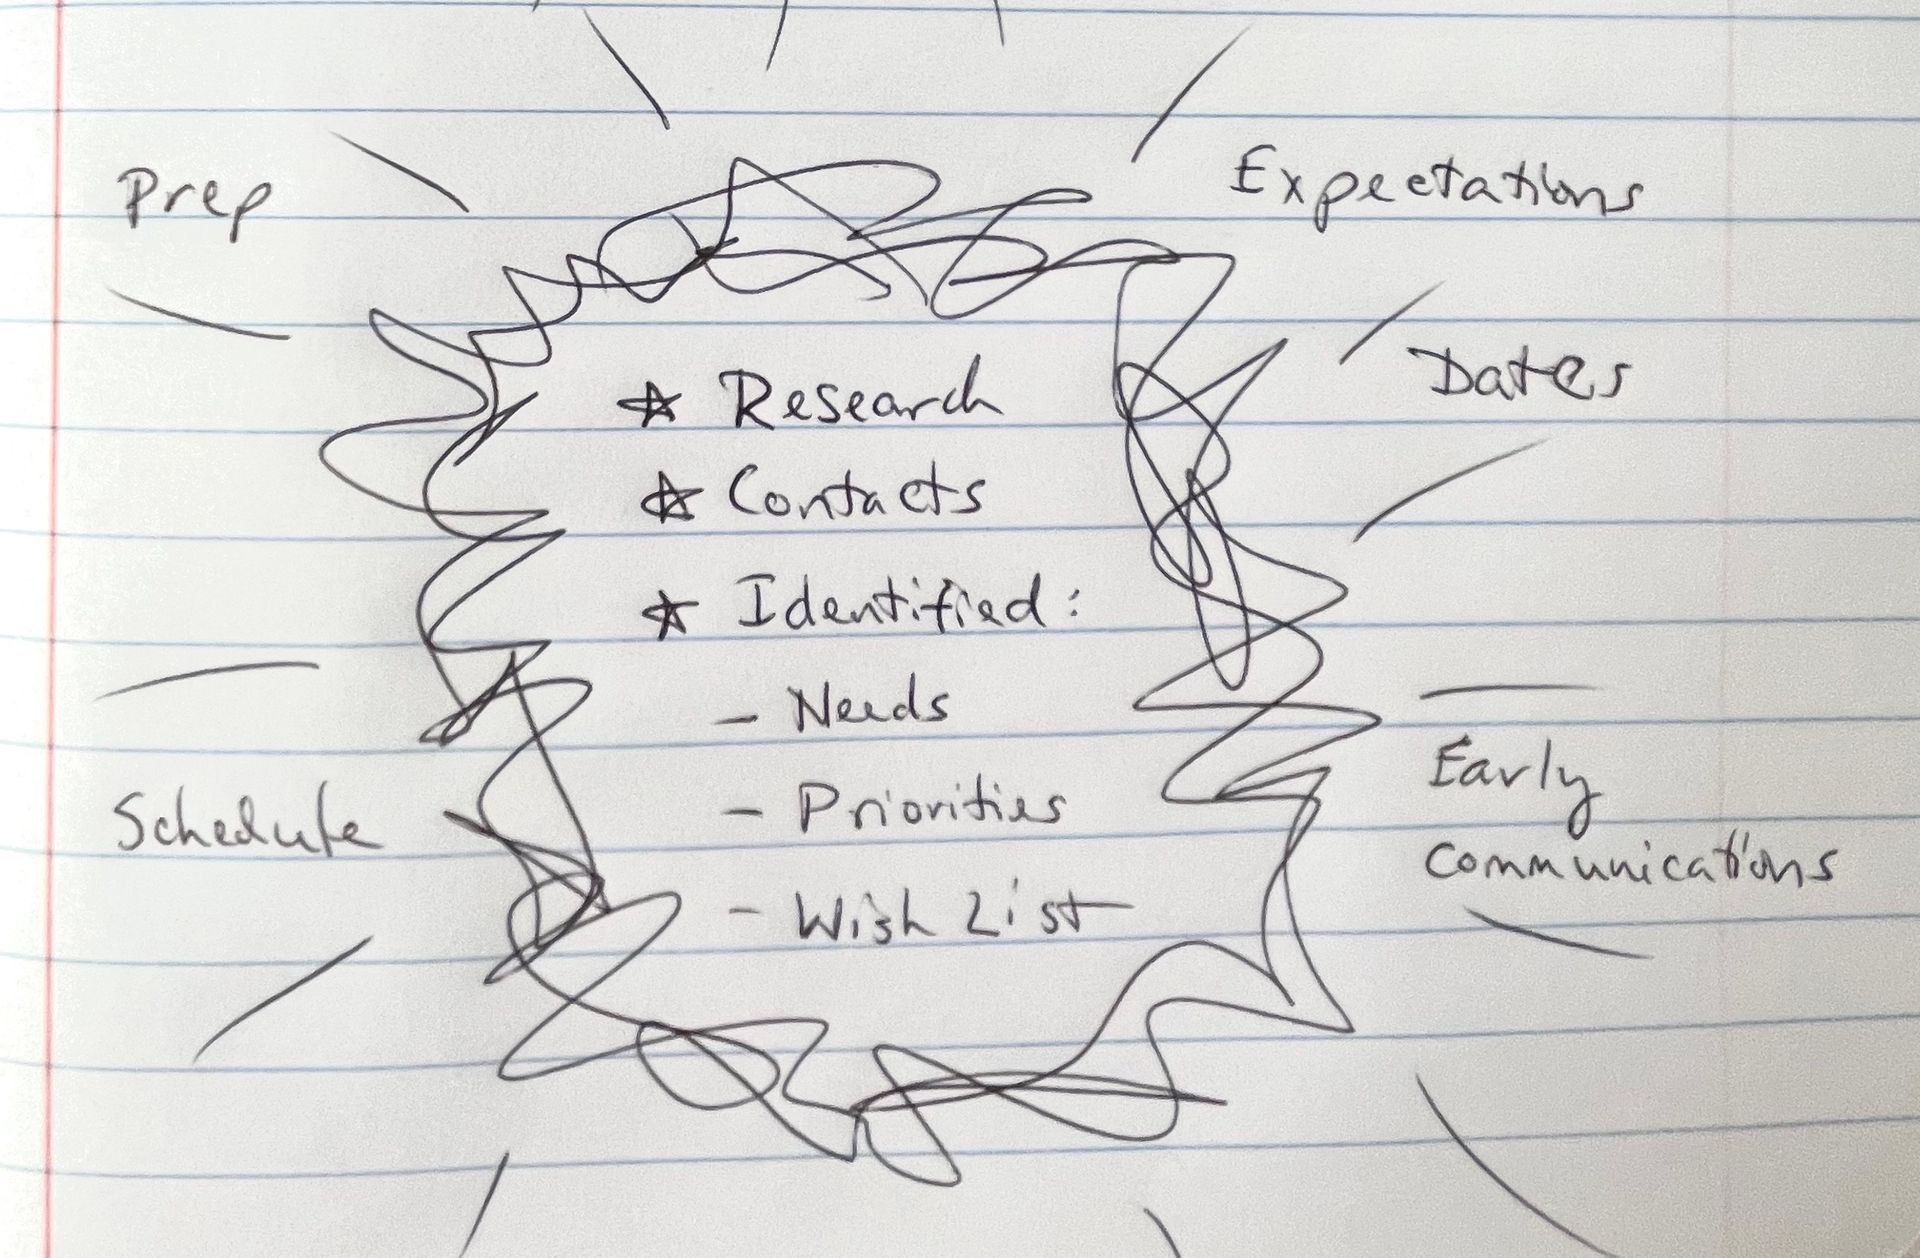 Prep
Expectations
Dates
☆ Research
☆ Contacts
☆ Identified:
- Needs
- Priorities
- Wish List
Schedule
Early
Communications